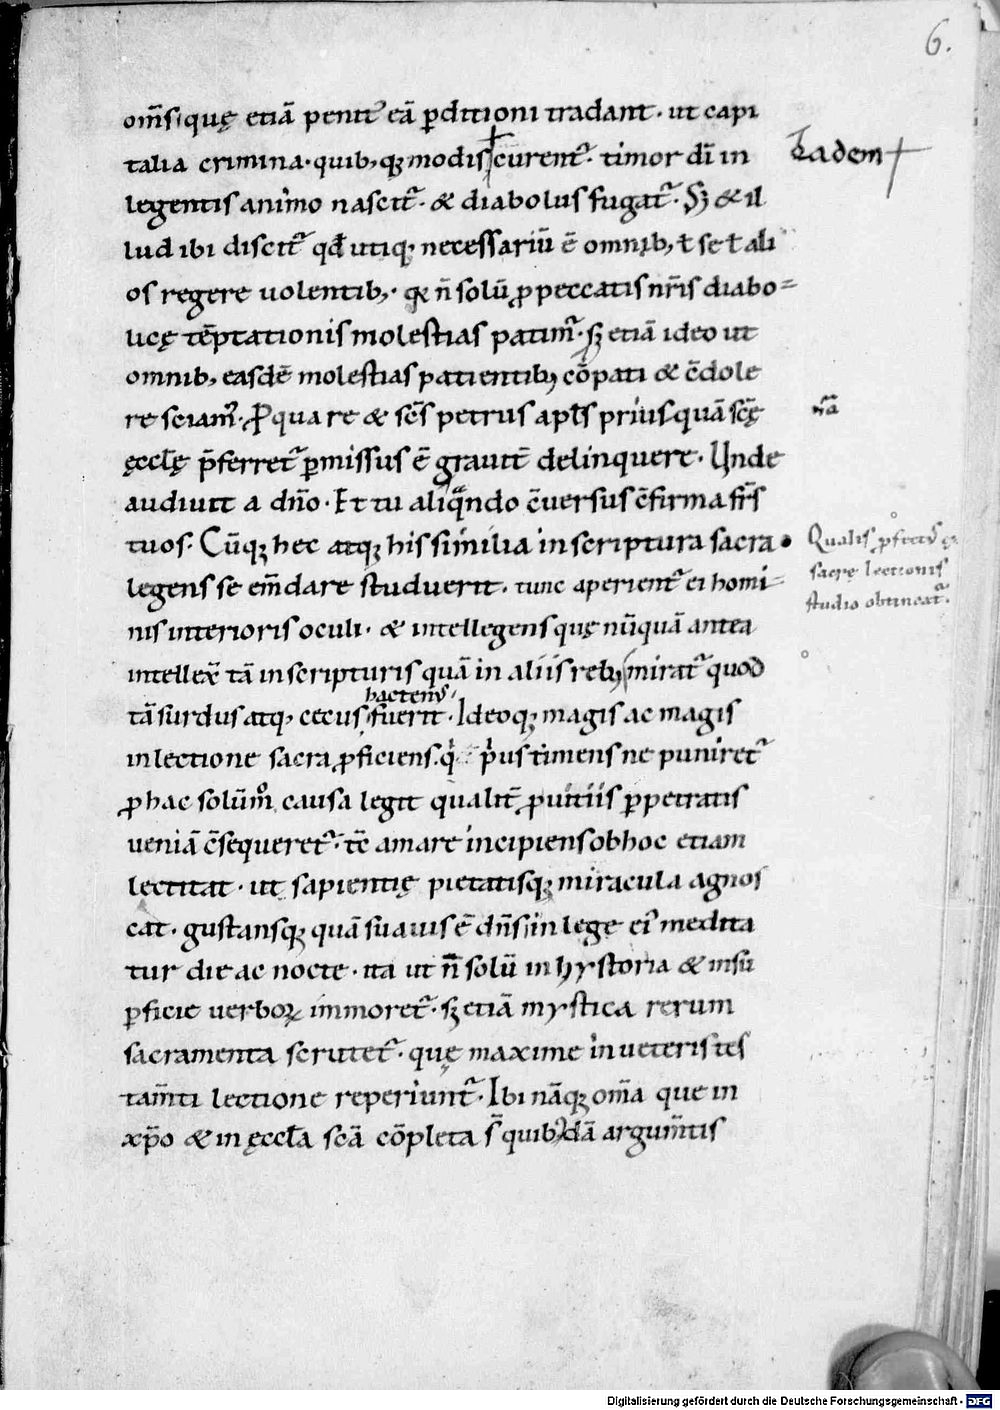 6.
om̄s quę etiā penit᷒ eā ꝑditioni tradant · ut capi
talia crimina · quib, qꝫ modis curent᷑ · timor dī in
Eadem
legentis animo nascit᷑ · & diabolus fugat᷑ · Sꝫ & il
lud ibi discit᷑ qđ utiqꝫ necessariū ē omnib, ł se ł ali
os regere uolentib, · n̄ solū ꝓ peccatis nr̄is diabo-
licę tēptationis molestias patim᷑ · sꝫ etiā ideo ut
omnib, easdē molestias patientib, cōpati & c̄dole
re sciam᷒ · Pro qua re & sc̄s petrus apl̄s prius quā sc̄ę
ęccl̄ę p̄ferret᷑ ꝑmissus ē grauit̄ delinquere · Unde
audiuit a dn̄o · Et tu aliqn̄do c̄uersus c̄firma fr̄s
tuos · Cūqꝫ hec atqꝫ his similia in scriptura sacra
Qualis ꝓfect᷒
sacrę lectionis
studio obtineat᷑.
legens se em̄dare studuerit · tunc aperient᷑ ei homi-
nis interioris oculi · & intellegens quę nūquā antea
intellex̄ tā in scripturis quā in aliis reb, mirat᷑ quod
hacten᷒
tā surdus atq, cecus fuerit · Ideoqꝫ magis ac magis
in lectione sacra ꝓficiens · q̇ ṗus timens ne puniret᷑
ꝓ hac solūm̊ causa legit qualit̄ ꝓ uitiis ꝑpetratis
ueniā c̄sequeret᷑ · tc̄ amare incipiens ob hoc etiam
lectitat · ut sapientię pietatisqꝫ miracula agnos
cat · gustansqꝫ quā suauis ē dn̄s in lege ei᷒ medita
tur die ac nocte · ita ut n̄ solū in hystoria & in sū
ꝑficie uerboꝝ immoret᷑ · sꝫ etiā mystica rerum
sacramenta scrutet᷑ · quę maxime in ueteris tes
tam̄ti lectione reperiunt᷑ · Ibi nāqꝫ om̄a que in
xp̄o & in ęccl̄a sc̄a cōpleta s̄ quib,dā argum̄tis
Digitalisierung gefördert durch die Deutsche Forschungsgemeinschaft - DFG